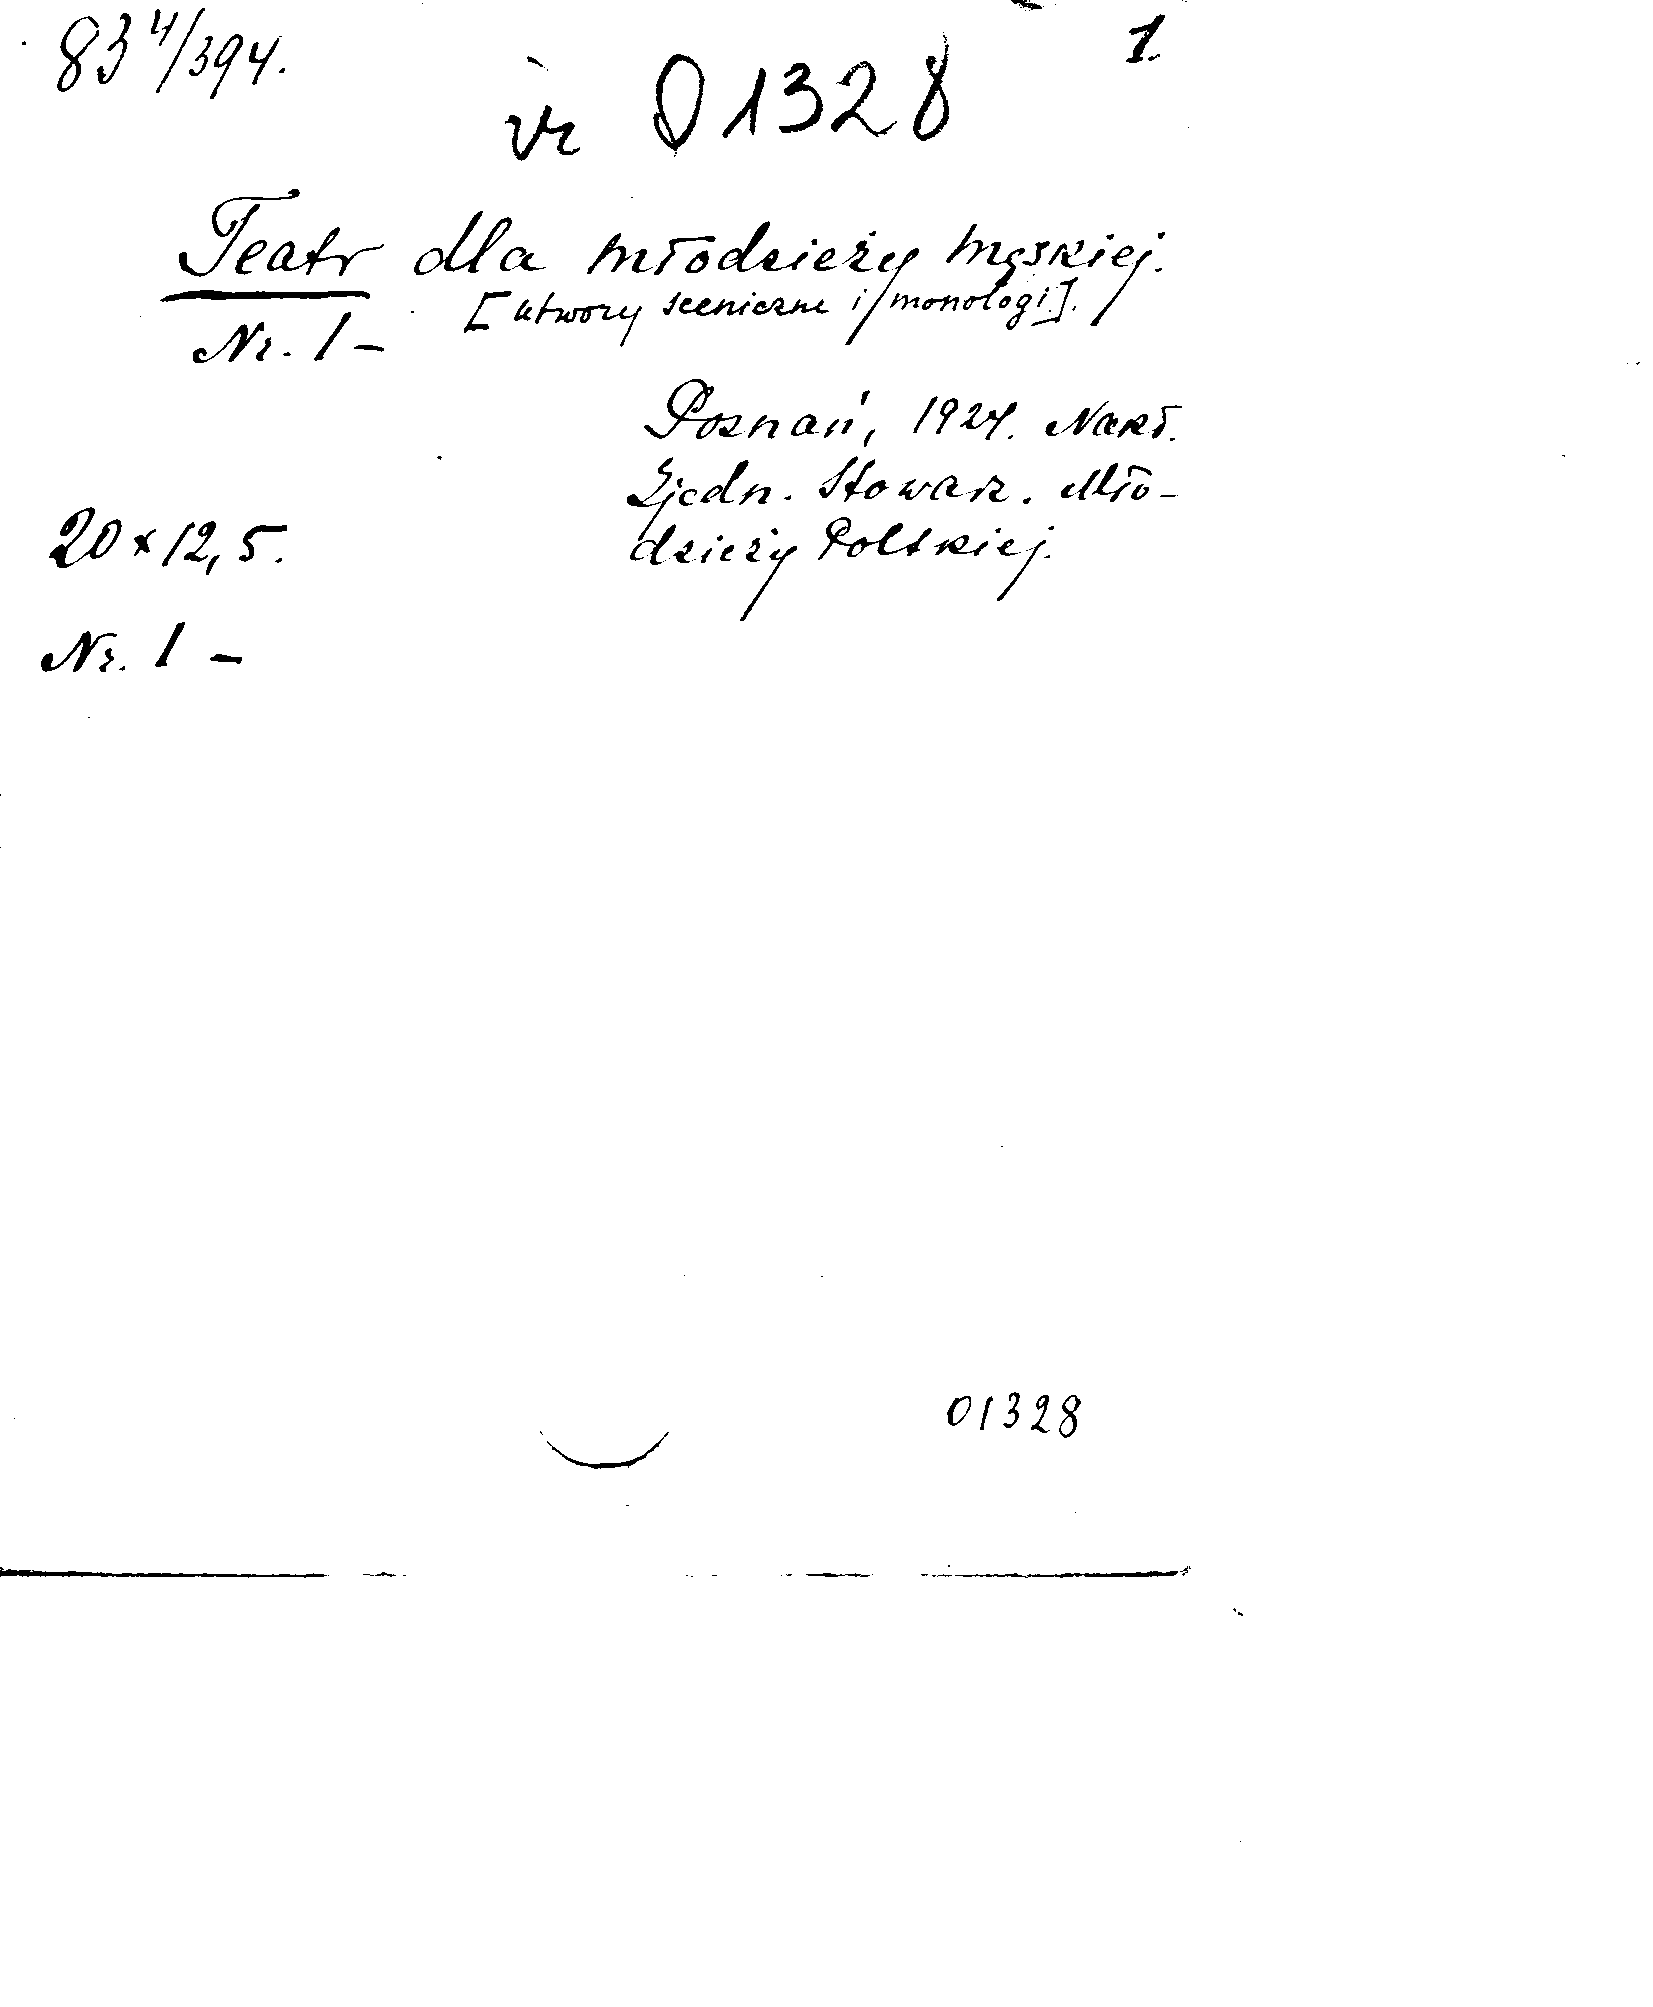 83 4/394.
1.
01328
Teatr dla młodzieży męskiej.
[utwory sceniczne i monologi].
Nr. 1 –
Poznań, 1924. Nakł.
Zjedn. Stowarz. Mło-
dzieży Polskiej.
20 x 12,5.
Nr. 1 –
01328